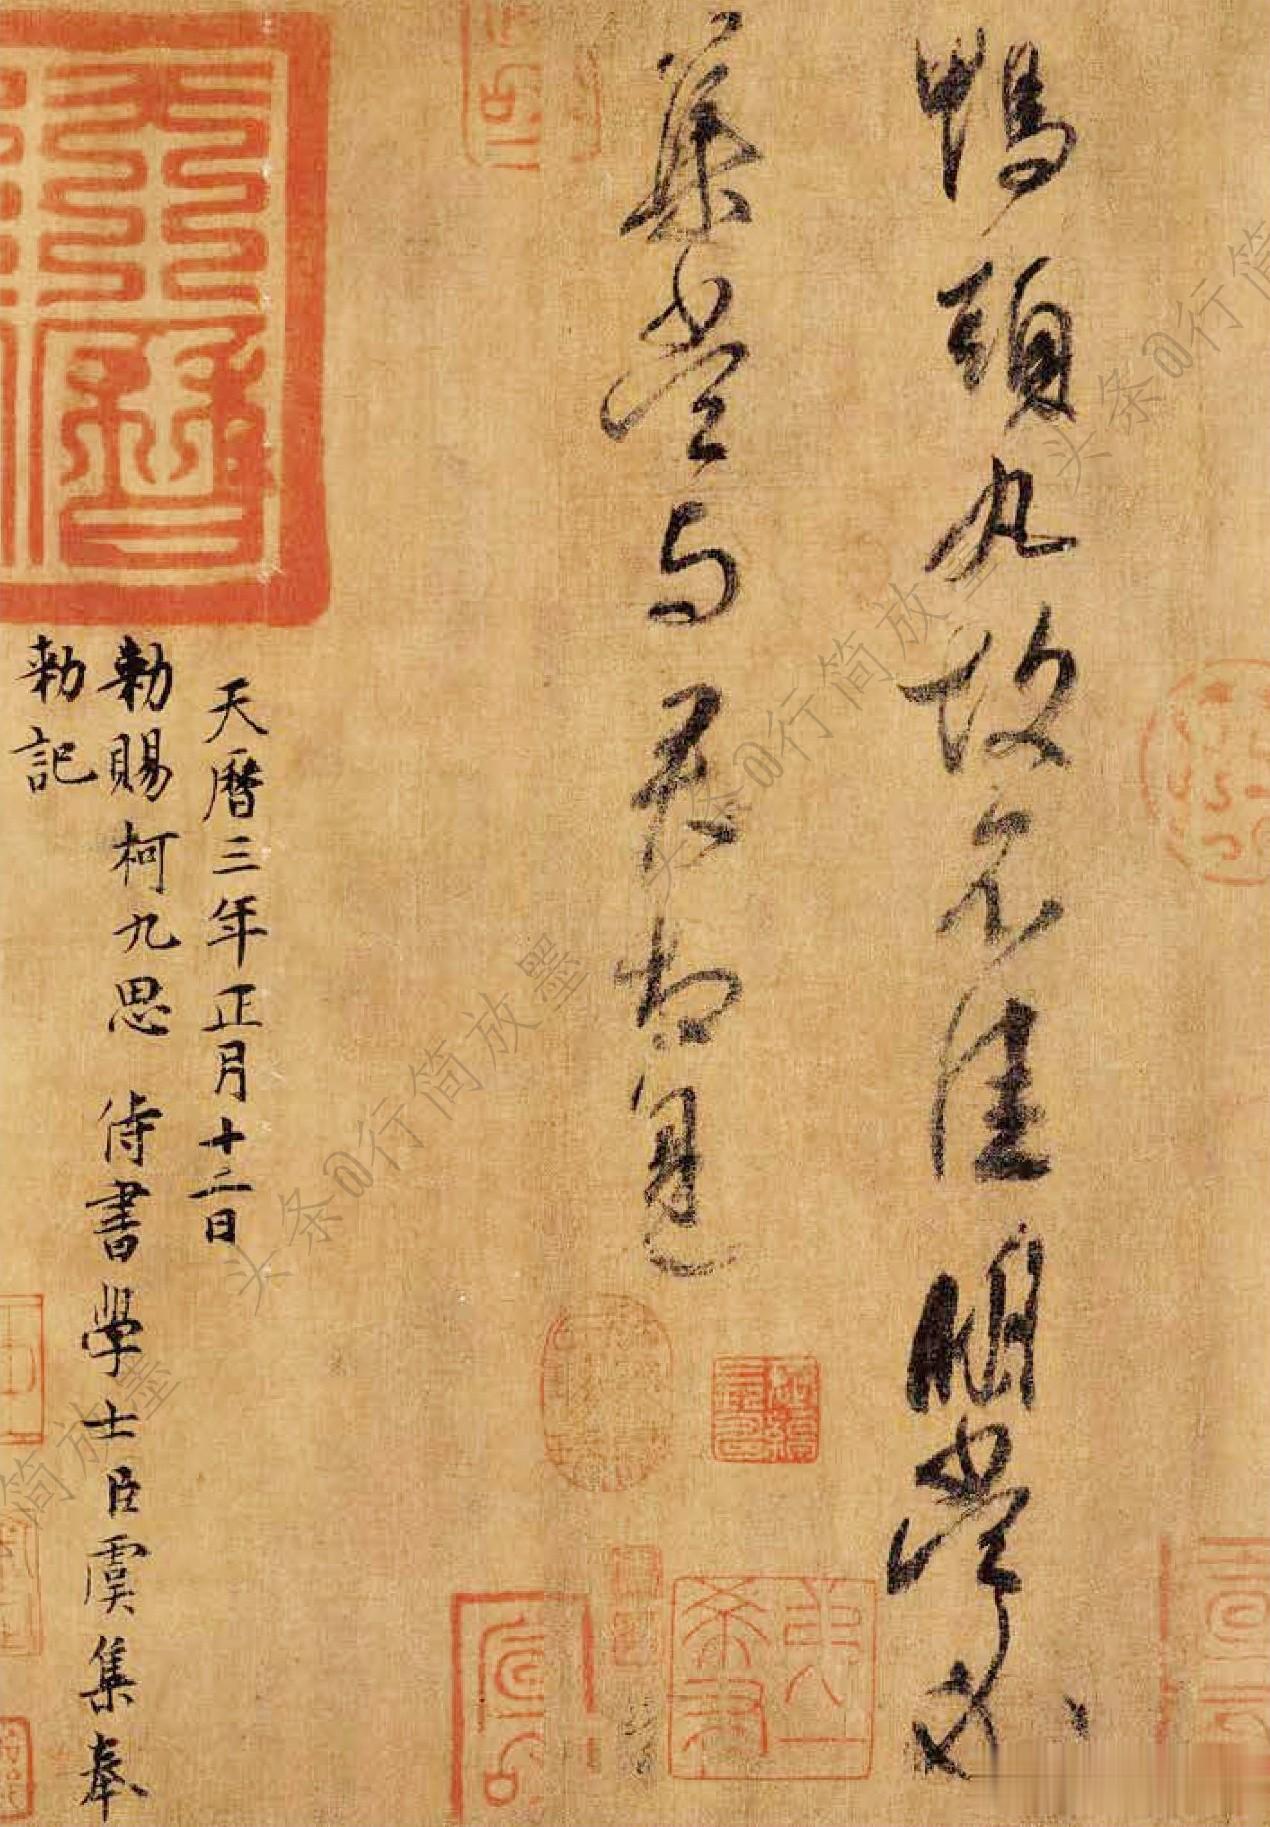 鴨頭丸故不佳明當必
集當與君相見
天曆三年正月十二日
勑賜柯九思侍書學士臣虞集奉
勑記
天曆
头条@行简放墨
头条@行简放墨
头条@行简放墨